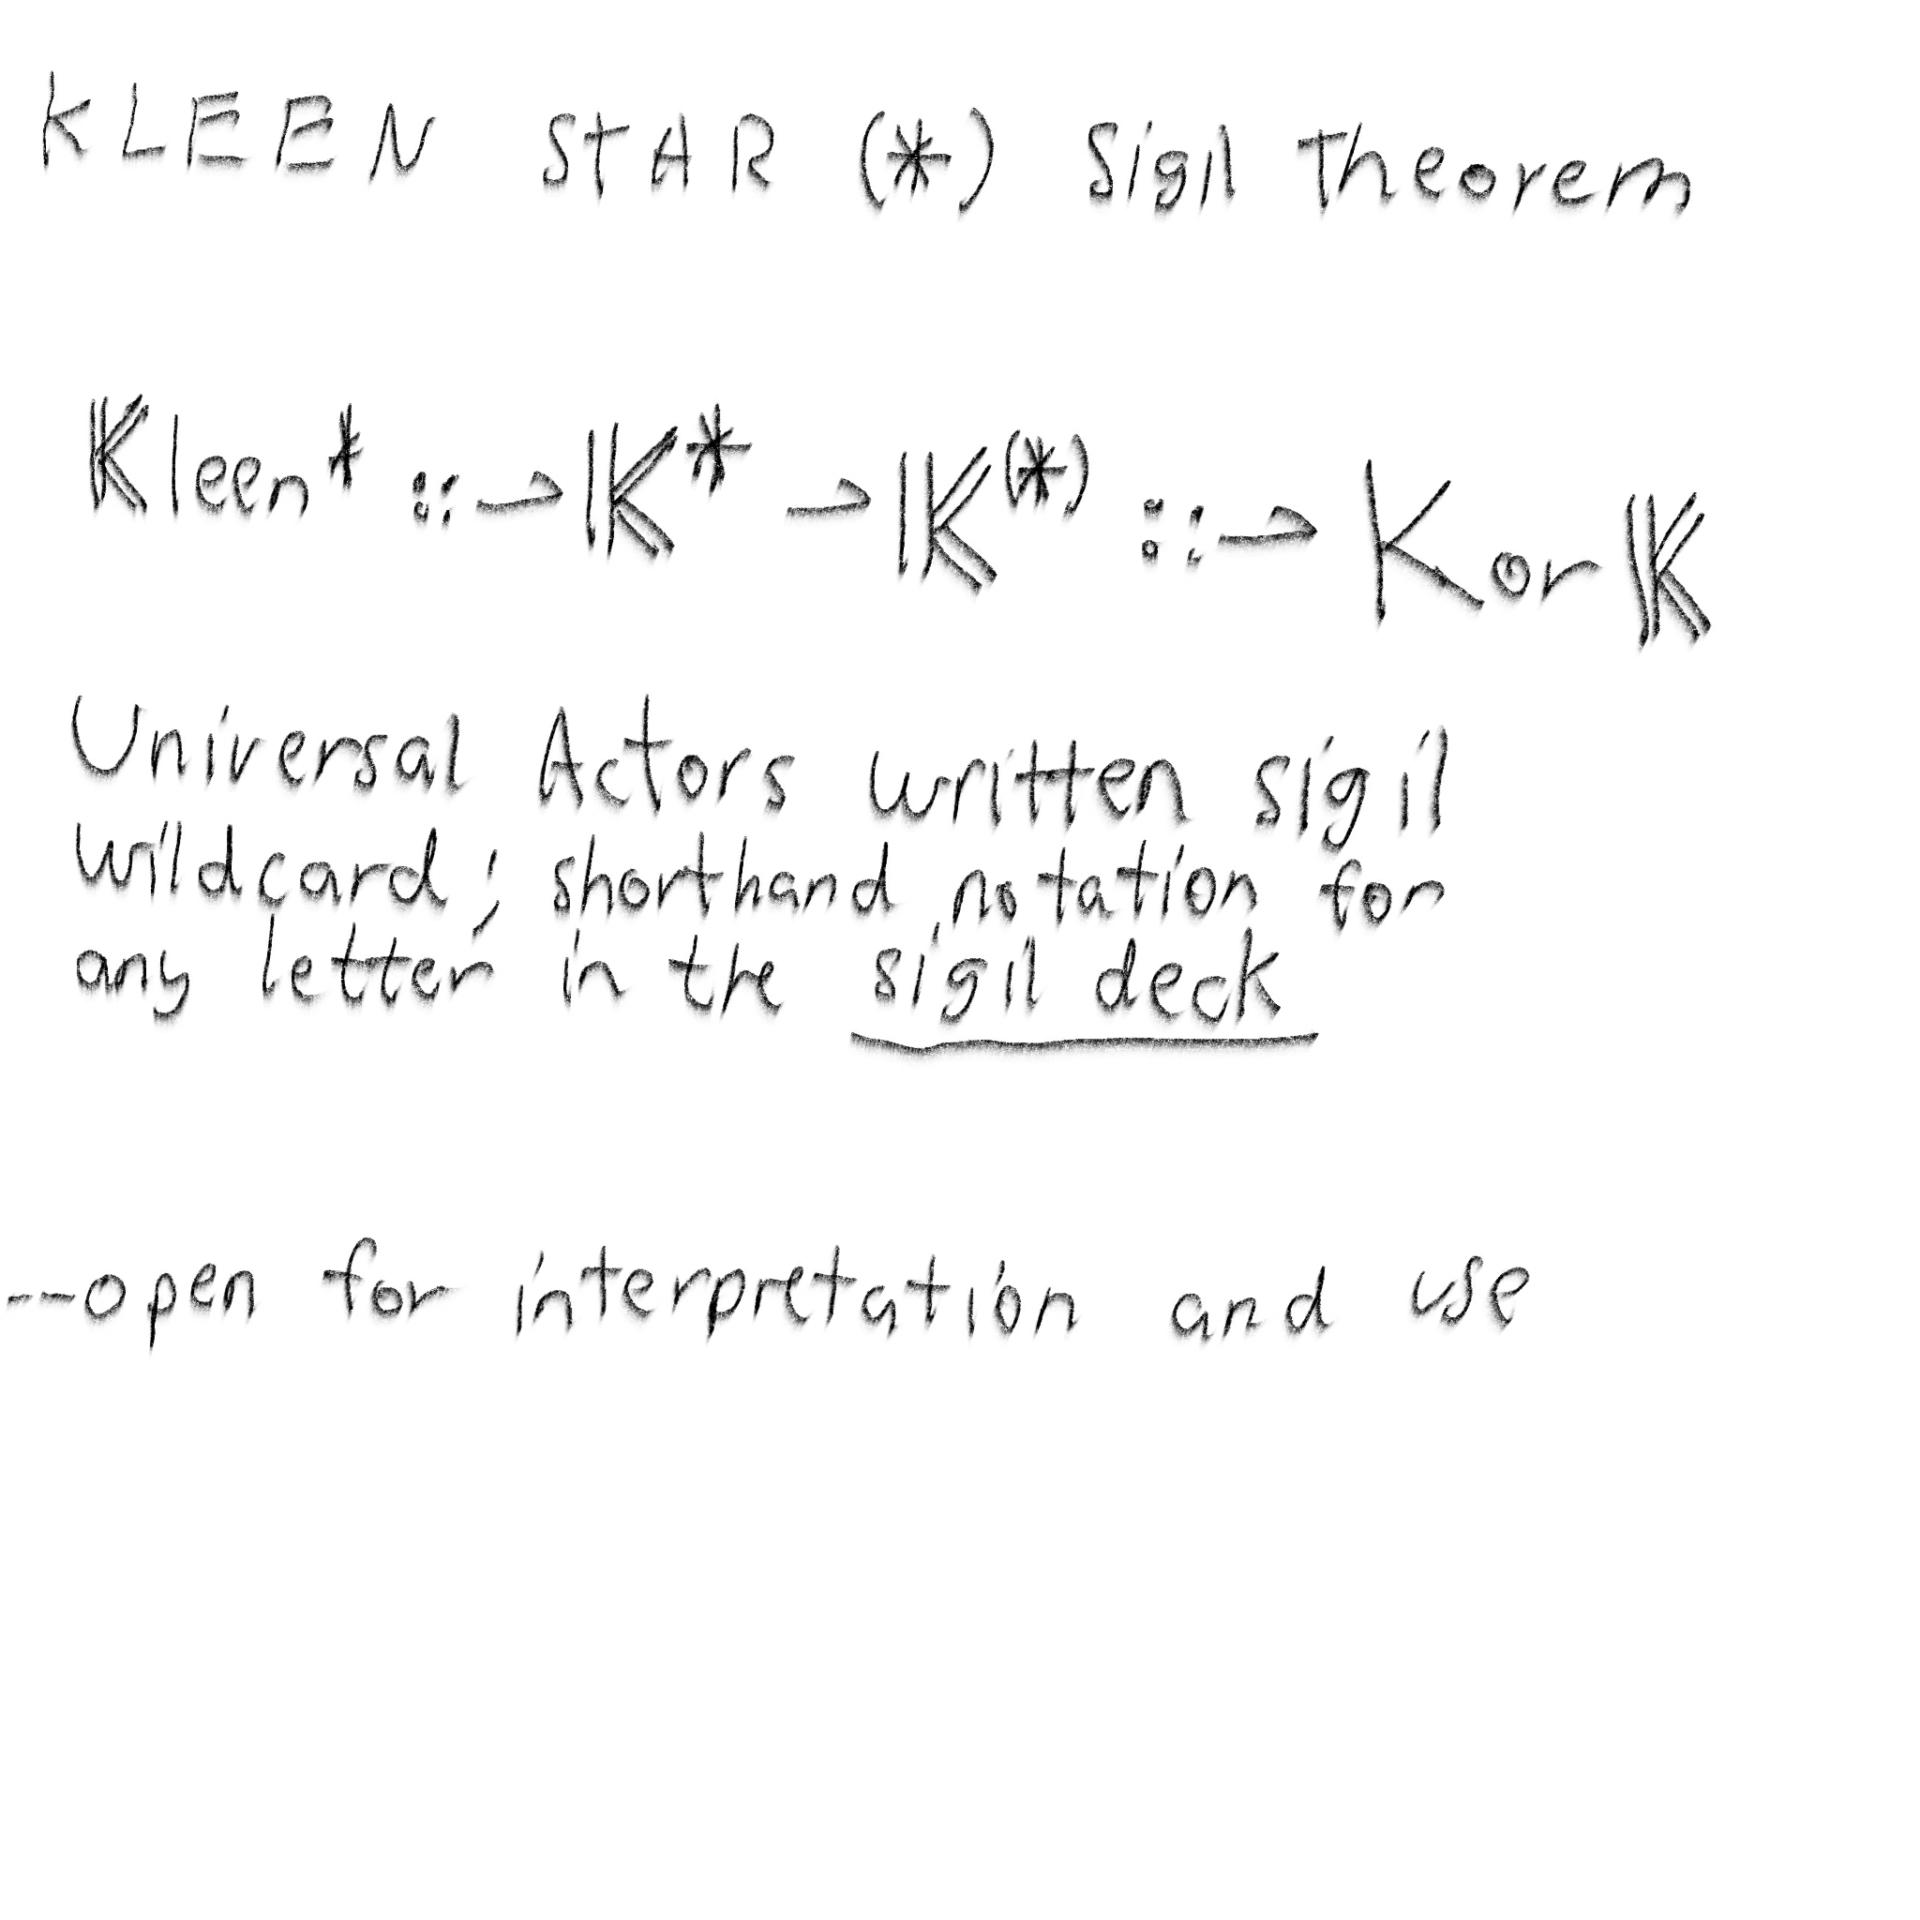 KLEEN STAR (*) Sigil Theorem
𝕂leen* ::→ 𝕂* → 𝕂(*) ::→ K or 𝕂
Universal Actors written sigil
wildcard; shorthand notation for
any letter in the sigil deck
--open for interpretation and use